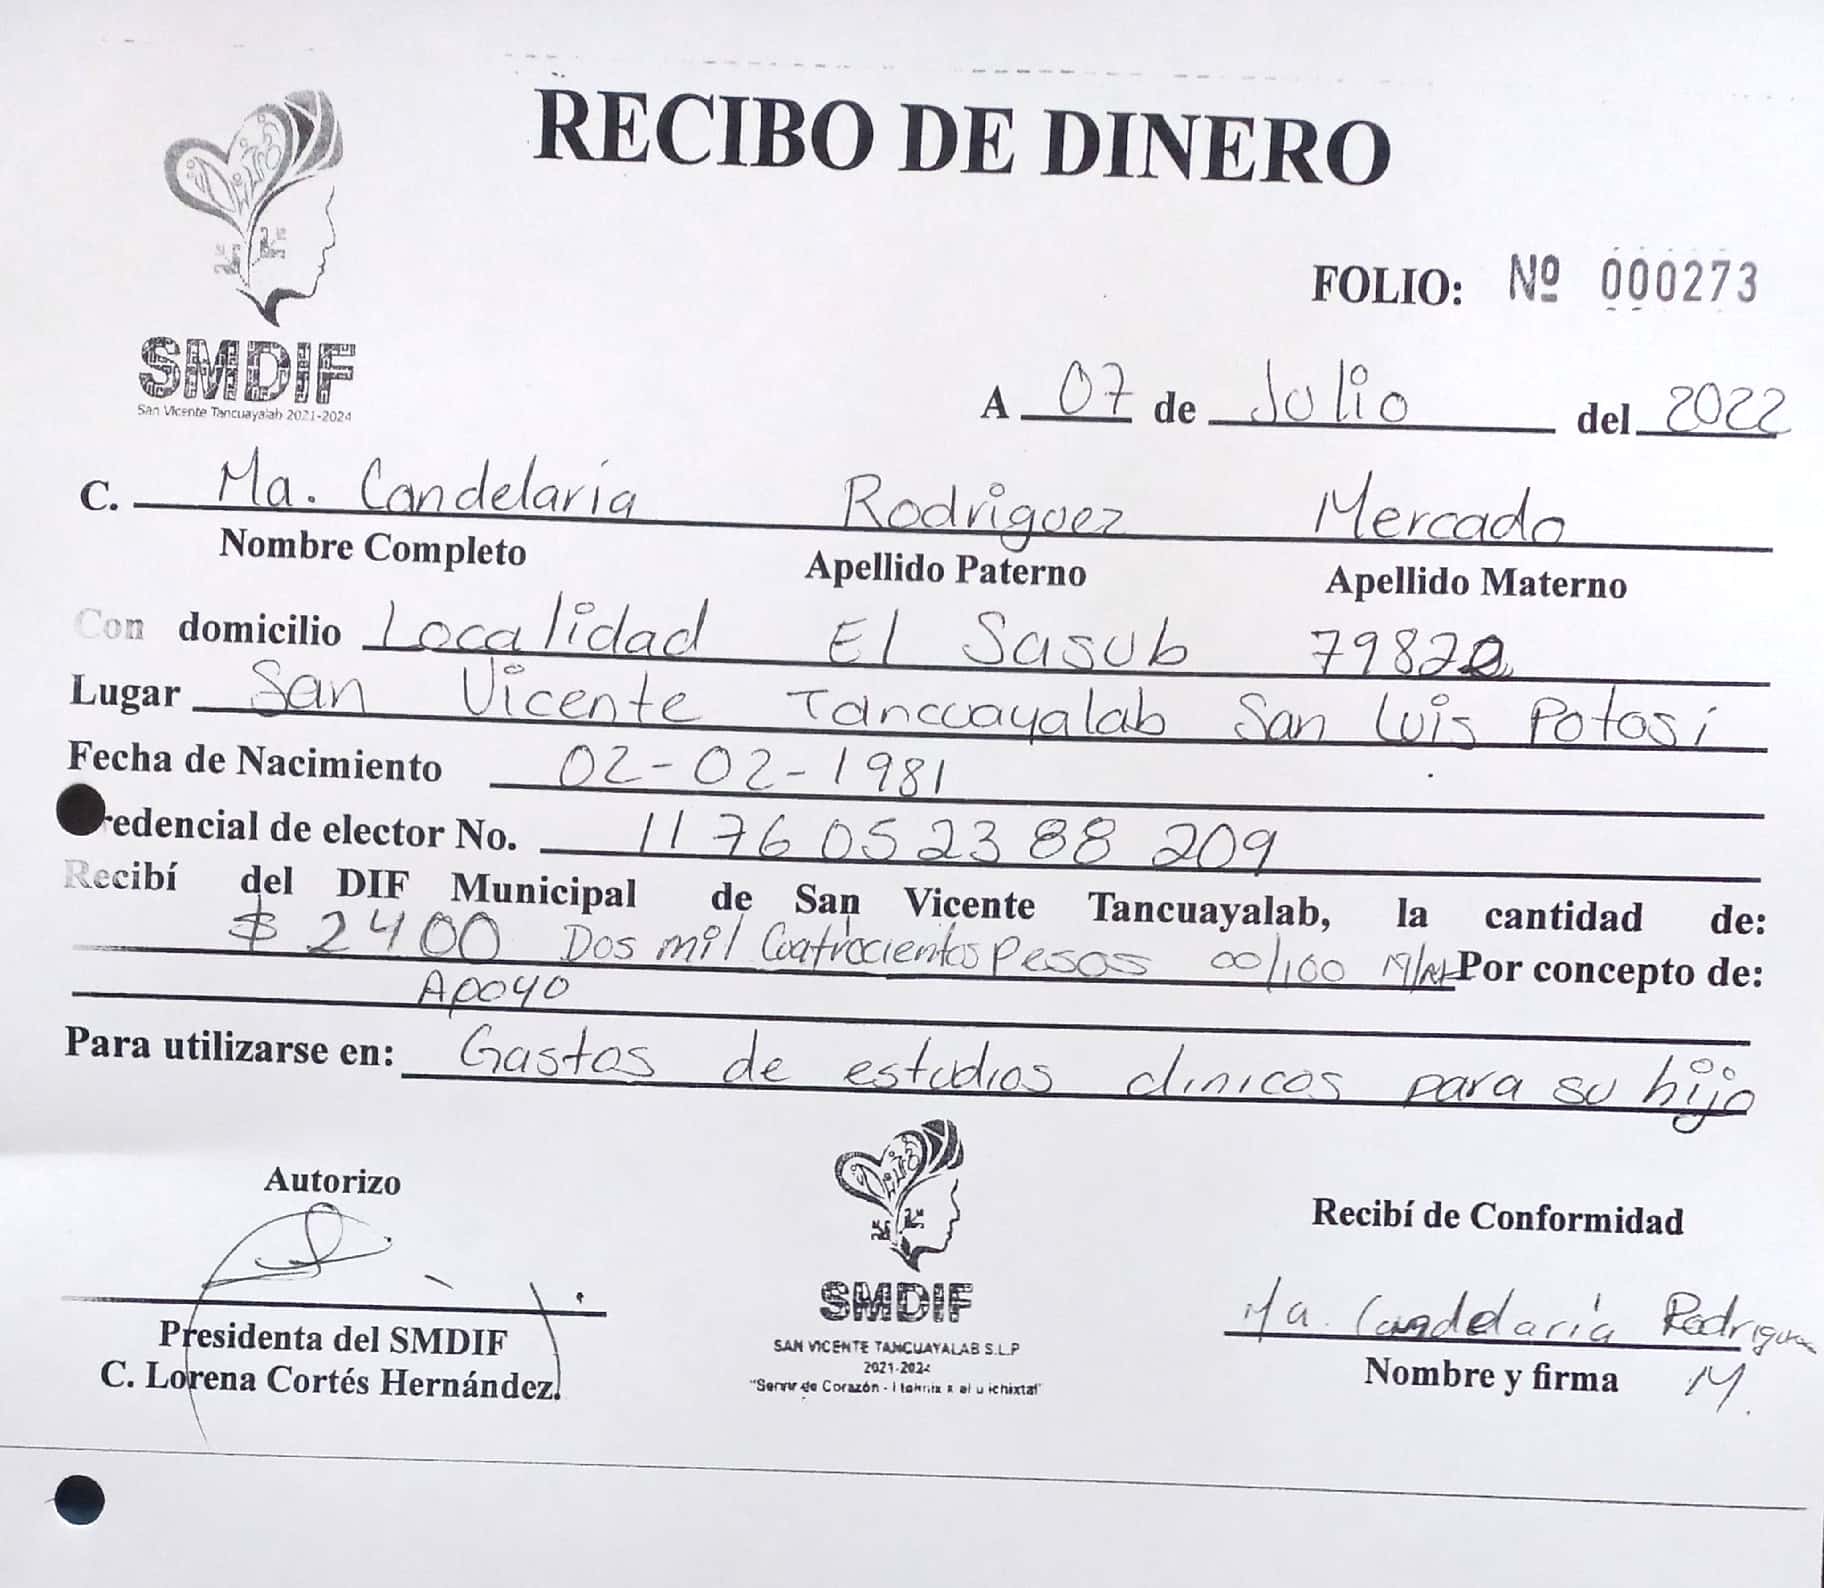 RECIBO DE DINERO
FOLIO: Nº 000273
SMDIF
San Vicente Tancuayalab 2021-2024
A 07 de Julio del 2022
C. Ma. Candelaria Rodriguez Mercado
Nombre Completo Apellido Paterno Apellido Materno
Con domicilio Localidad El Sasub 79820
Lugar San Vicente Tancuayalab San Luis Potosi
Fecha de Nacimiento 02-02-1981
redencial de elector No. 1176052388209
Recibí del DIF Municipal de San Vicente Tancuayalab, la cantidad de:
$ 2400 Dos mil Cuatrocientos Pesos 00/100 Por concepto de:
Apoyo
Para utilizarse en: Gastos de estudios clinicos para su hijo
Autorizo
Recibí de Conformidad
SMDIF
SAN VICENTE TANCUAYALAB S.L.P
2021-2024
"Servir de Corazón -
Ma. Candelaria Rodriguez
M.
Presidenta del SMDIF
C. Lorena Cortés Hernández.
Nombre y firma